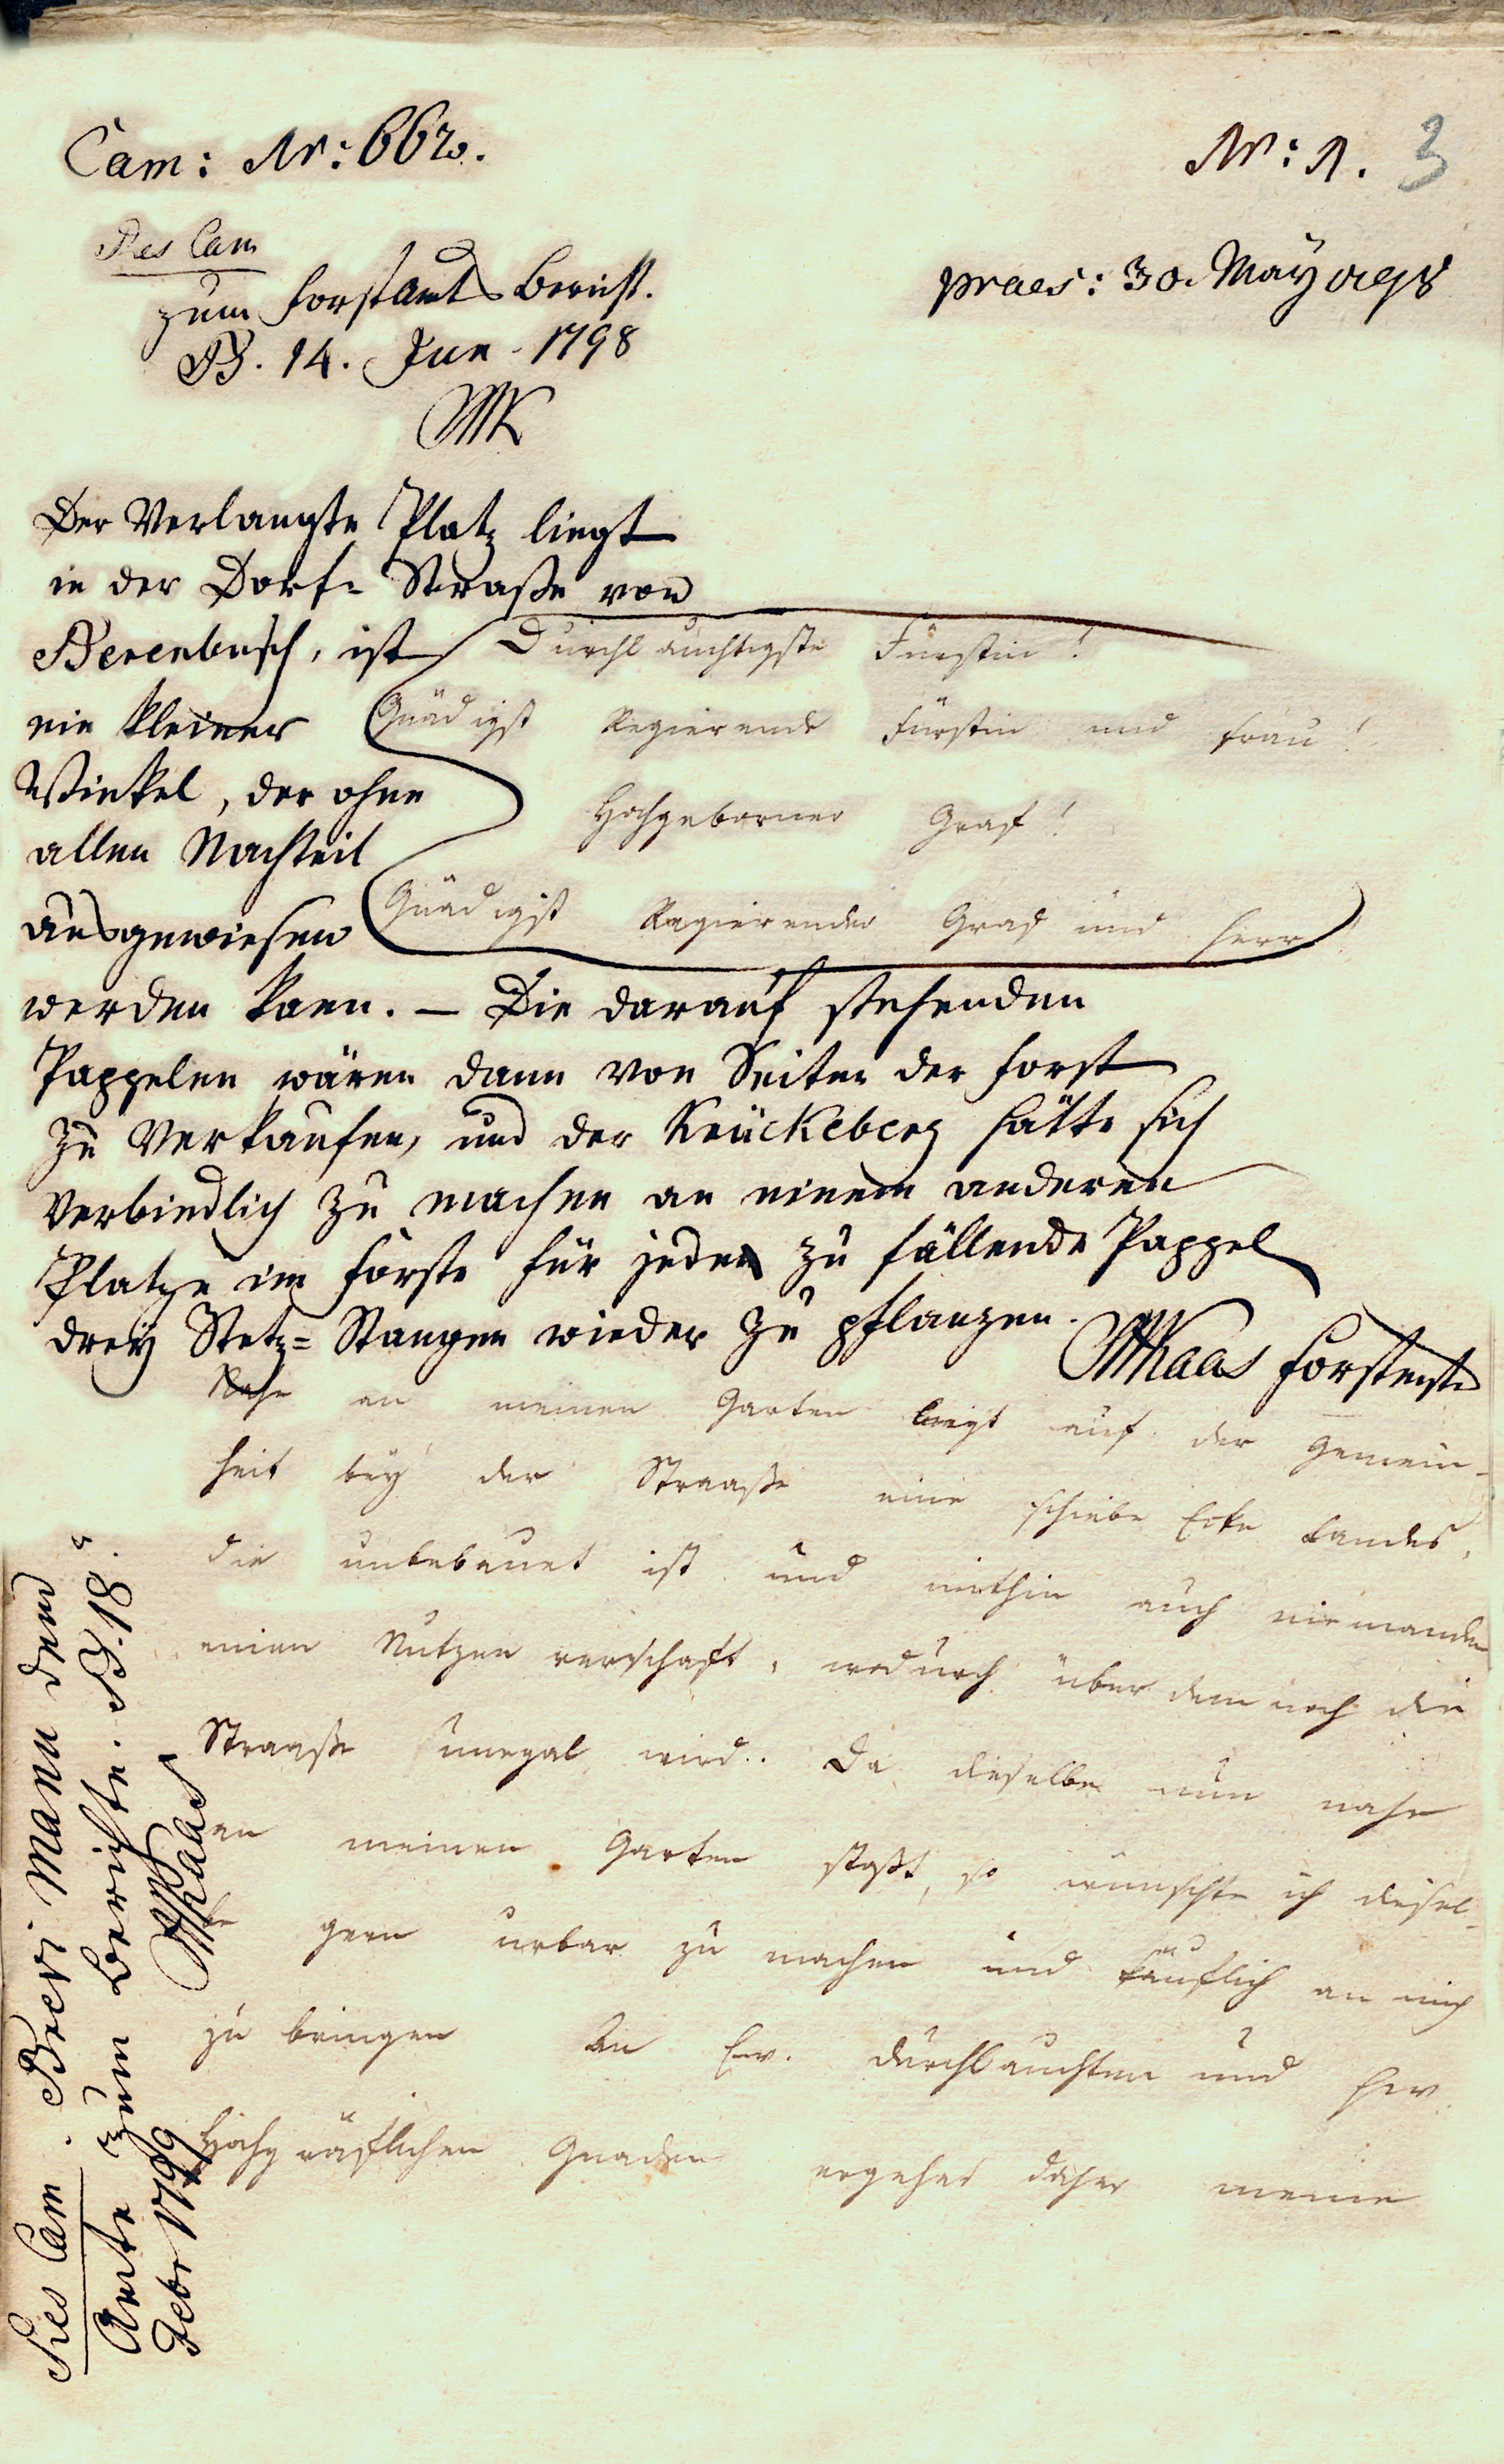 Cam: Nr: 662.
Nr: 1. 3
Res Cam
zum Forstamts Bericht.
praes: 30. May 1798
B. 14. Jun. 1798
Der Verlangte Platz liegt
in der Dorf= Straße von
Berenbusch, ist
ein kleiner
Winkel, der ohne
allen Nachteil
ausgewiesen
werden kann. — Die darauf stehenden
Pappelen wären dann von Seiten der Forst
zu Verkaufen, und der Krückeberg hätte sich
Verbindlich zu machen an einem anderen
Platze im Forste für jeden zu fällende Pappel
drey Setz= Stangen wieder zu pflanzen.
Durchlauchtigste Fürstin!
Gnädigst Regierende Fürstin und Frau!
Hochgeborner Graf!
Gnädigst Regierender Graf und Herr
Nahe an meinen Garten liegt auf der Gemein-
heit bey der Straaße eine schiebe Ecke Landes,
die unbebauet ist und mithin auch niemanden
einen Nutzen verschaft, wodurch über dem noch die
Straaße unegal wird.. Da dieselbe nun nahe
an meinen Garten stoßt, so wünschte ich diesel-
be gern urbar zu machen und käuflich an mich
zu bringen An Ew. Durchlauchten und Ew.
Hochgräflichen Gnaden ergehet daher meine
Res Cam.
Amte zum Berichte. B. 18.
Febr 1799